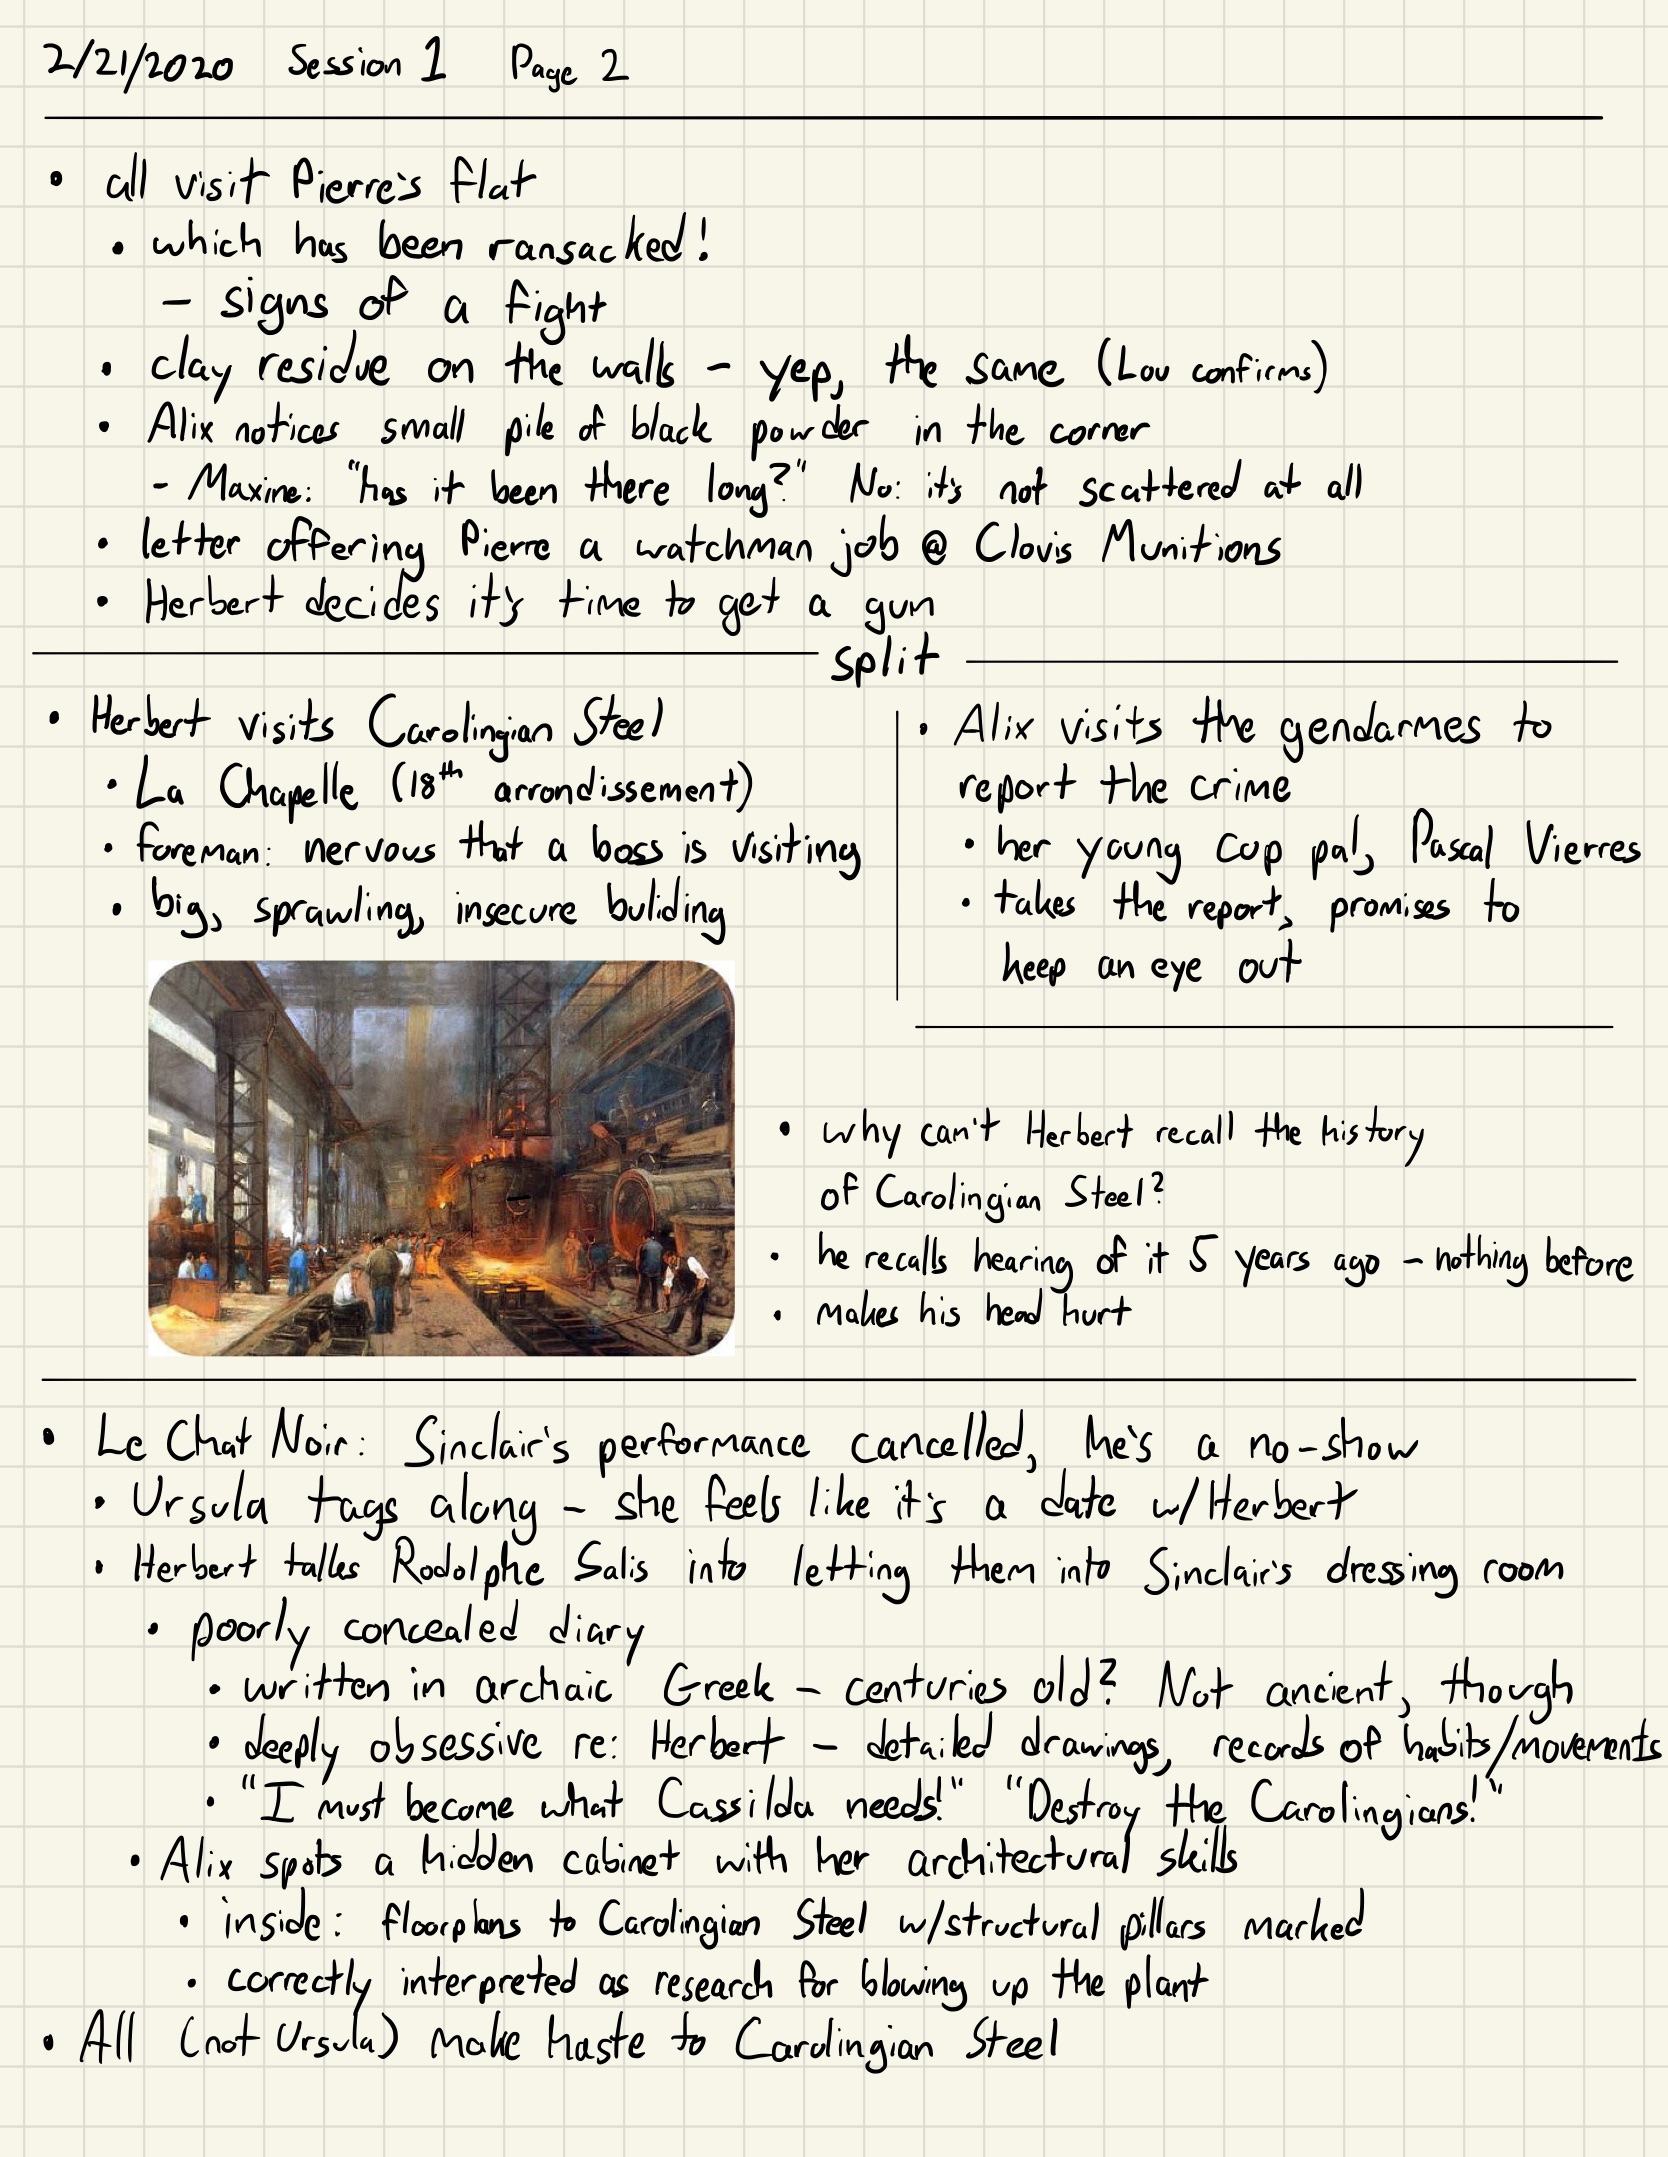 2/21/2020 Session 1 Page 2
• all visit Pierre's flat
• which has been ransacked!
– signs of a fight
• clay residue on the walls – yep, the same (Lou confirms)
• Alix notices small pile of black powder in the corner
– Maxine: "has it been there long?" No: it's not scattered at all
• letter offering Pierre a watchman job @ Clovis Munitions
• Herbert decides it's time to get a gun
split
• Herbert visits Carolingian Steel
• La Chapelle (18th arrondissement)
• foreman: nervous that a boss is visiting
• big, sprawling, insecure buliding
• Alix visits the gendarmes to
report the crime
• her young cop pal, Pascal Vierres
• takes the report, promises to
keep an eye out
• why can't Herbert recall the history
of Carolingian Steel?
• he recalls hearing of it 5 years ago – nothing before
• makes his head hurt
• Le Chat Noir: Sinclair's performance cancelled, he's a no-show
• Ursula tags along – she feels like it's a date w/Herbert
• Herbert talks Rodolphe Salis into letting them into Sinclair's dressing room
• poorly concealed diary
• written in archaic Greek – centuries old? Not ancient, though
• deeply obsessive re: Herbert – detailed drawings, records of habits/movements
• "I must become what Cassilda needs!" "Destroy the Carolingians!"
• Alix spots a hidden cabinet with her architectural skills
• inside: floorplans to Carolingian Steel w/structural pillars marked
• correctly interpreted as research for blowing up the plant
• All (not Ursula) make haste to Carolingian Steel